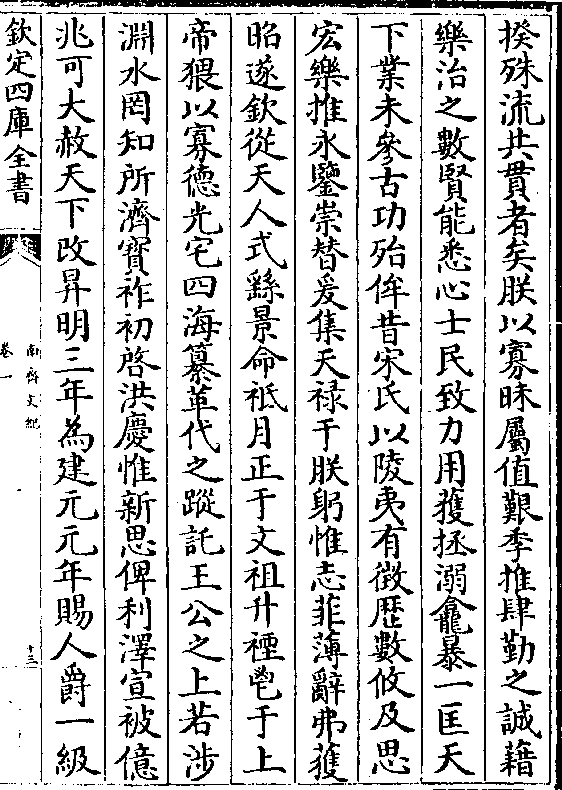 揆殊流共貫者矣朕以寡昧屬值艱季推肆勤之誠藉
樂治之數賢能悉心士民致力用獲拯溺龕暴一匡天
下業未參古功殆侔昔宋氏以陵夷有徵歴數攸及思
宏樂推永鑒崇替爰集天禄于朕躬惟志菲薄辭弗獲
昭遂欽從天人式繇景命祗月正于文祖升禋鬯于上
帝猥以寡德光宅四海纂革代之蹤託王公之上若涉
淵水罔知所濟寳祚初啓洪慶惟新思俾利澤宣被億
兆可大赦天下改昇明三年為建元元年賜人爵一級
欽定四庫全書
南齊文紀
卷一
十三